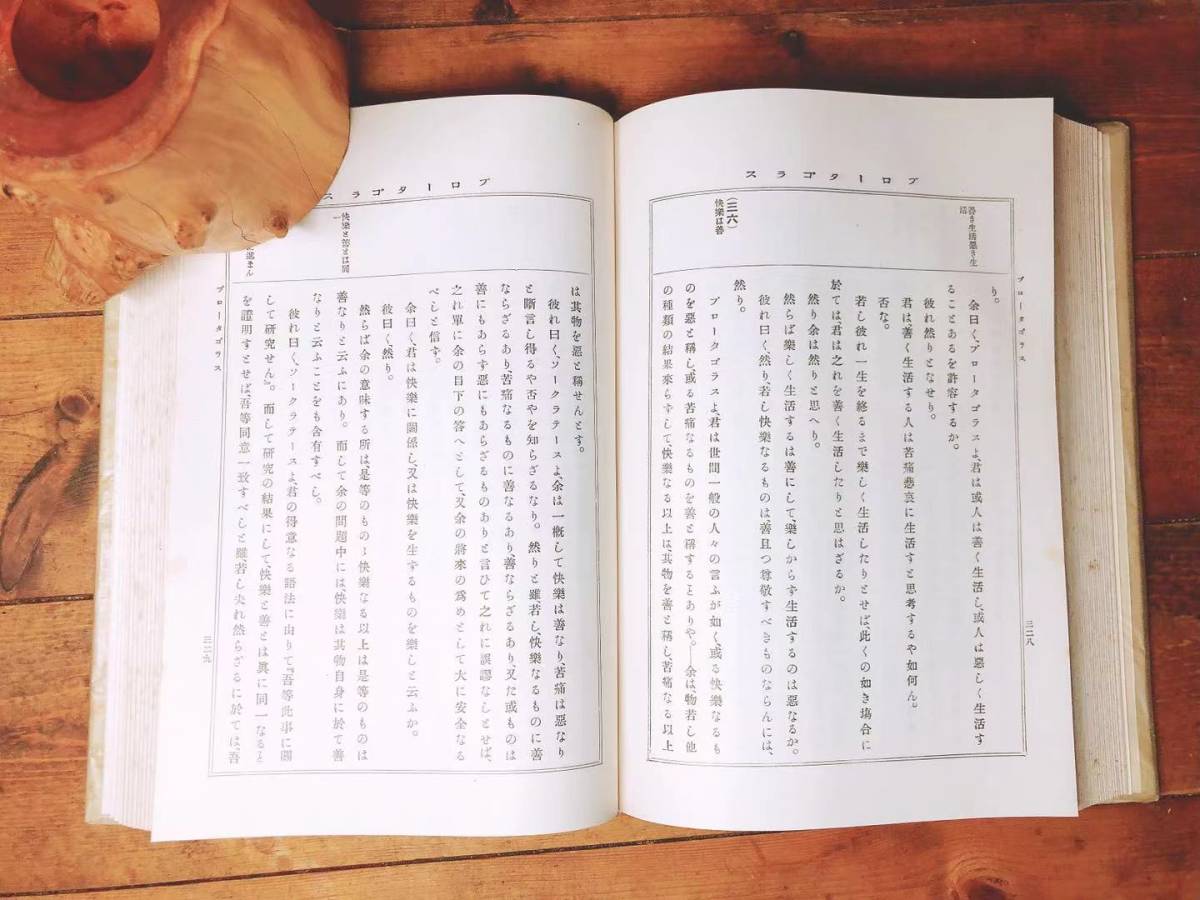 プロータゴラス
善き生活悪き生
活
(三六)
快樂は善
プロータゴラス
三二八
り。
余曰く、プロータゴラスよ、君は或人は善く生活し、或人は惡しく生活す
ることあるを許容するか。
彼れ然りとなせり。
君は善く生活する人は苦痛悲哀に生活すと思考するや如何ん。
否な。
若し彼れ一生を終るまで樂しく生活したりとせば、此くの如き塲合に
於ては君は之れを善く生活したりと思はざるか。
然り余は然りと思へり。
然らば樂しく生活するは善にして、樂しからず生活するのは惡なるか。
彼れ曰く、然り、若し快樂なるものは善且つ尊敬すべきものならんには、
然り。
プロータゴラスよ、君は世間一般の人々の言ふが如く、或る快樂なるも
のを惡と稱し、或る苦痛なるものを善と稱することありや。—余は、物若し他
の種類の結果來らずして、快樂なる以上は、其物を善と稱し、苦痛なる以上
プロータゴラス
快樂と善とは同
一
プロータゴラス
三二九
は其物を惡と稱せんとす。
彼れ曰く、ソークラテースよ、余は一槪して快樂は善なり、苦痛は惡なり
と斷言し得るや否やを知らざるなり。然りと雖、若し、快樂なるものに善
ならざるあり、苦痛なるものに善なるあり、善ならざるあり、又た或ものは
善にもあらず惡にもあらざるものありと言ひて之れに誤謬なしとせば、
之れ單に余の目下の答へとして、又余の將來の爲めとして大に安全なる
べしと信ず。
余曰く、君は快樂に關係し、又は快樂を生ずるものを樂しと云ふか。
彼曰く、然り。
然らば余の意味する所は、是等のものゝ快樂なる以上は是等のものは
善なりと云ふにあり。而して余の問題中には、快樂は其物自身に於て善
なりと云ふことをも含有すべし。
彼れ曰く、ソークラテースよ、君の得意なる語法に由りて『吾等此事に關
して硏究せん』。而して硏究の結果にして、快樂と善とは眞に同一なると
を證明すとせば、吾等同意一致すべしと雖若し夫れ然らざるに於ては、吾